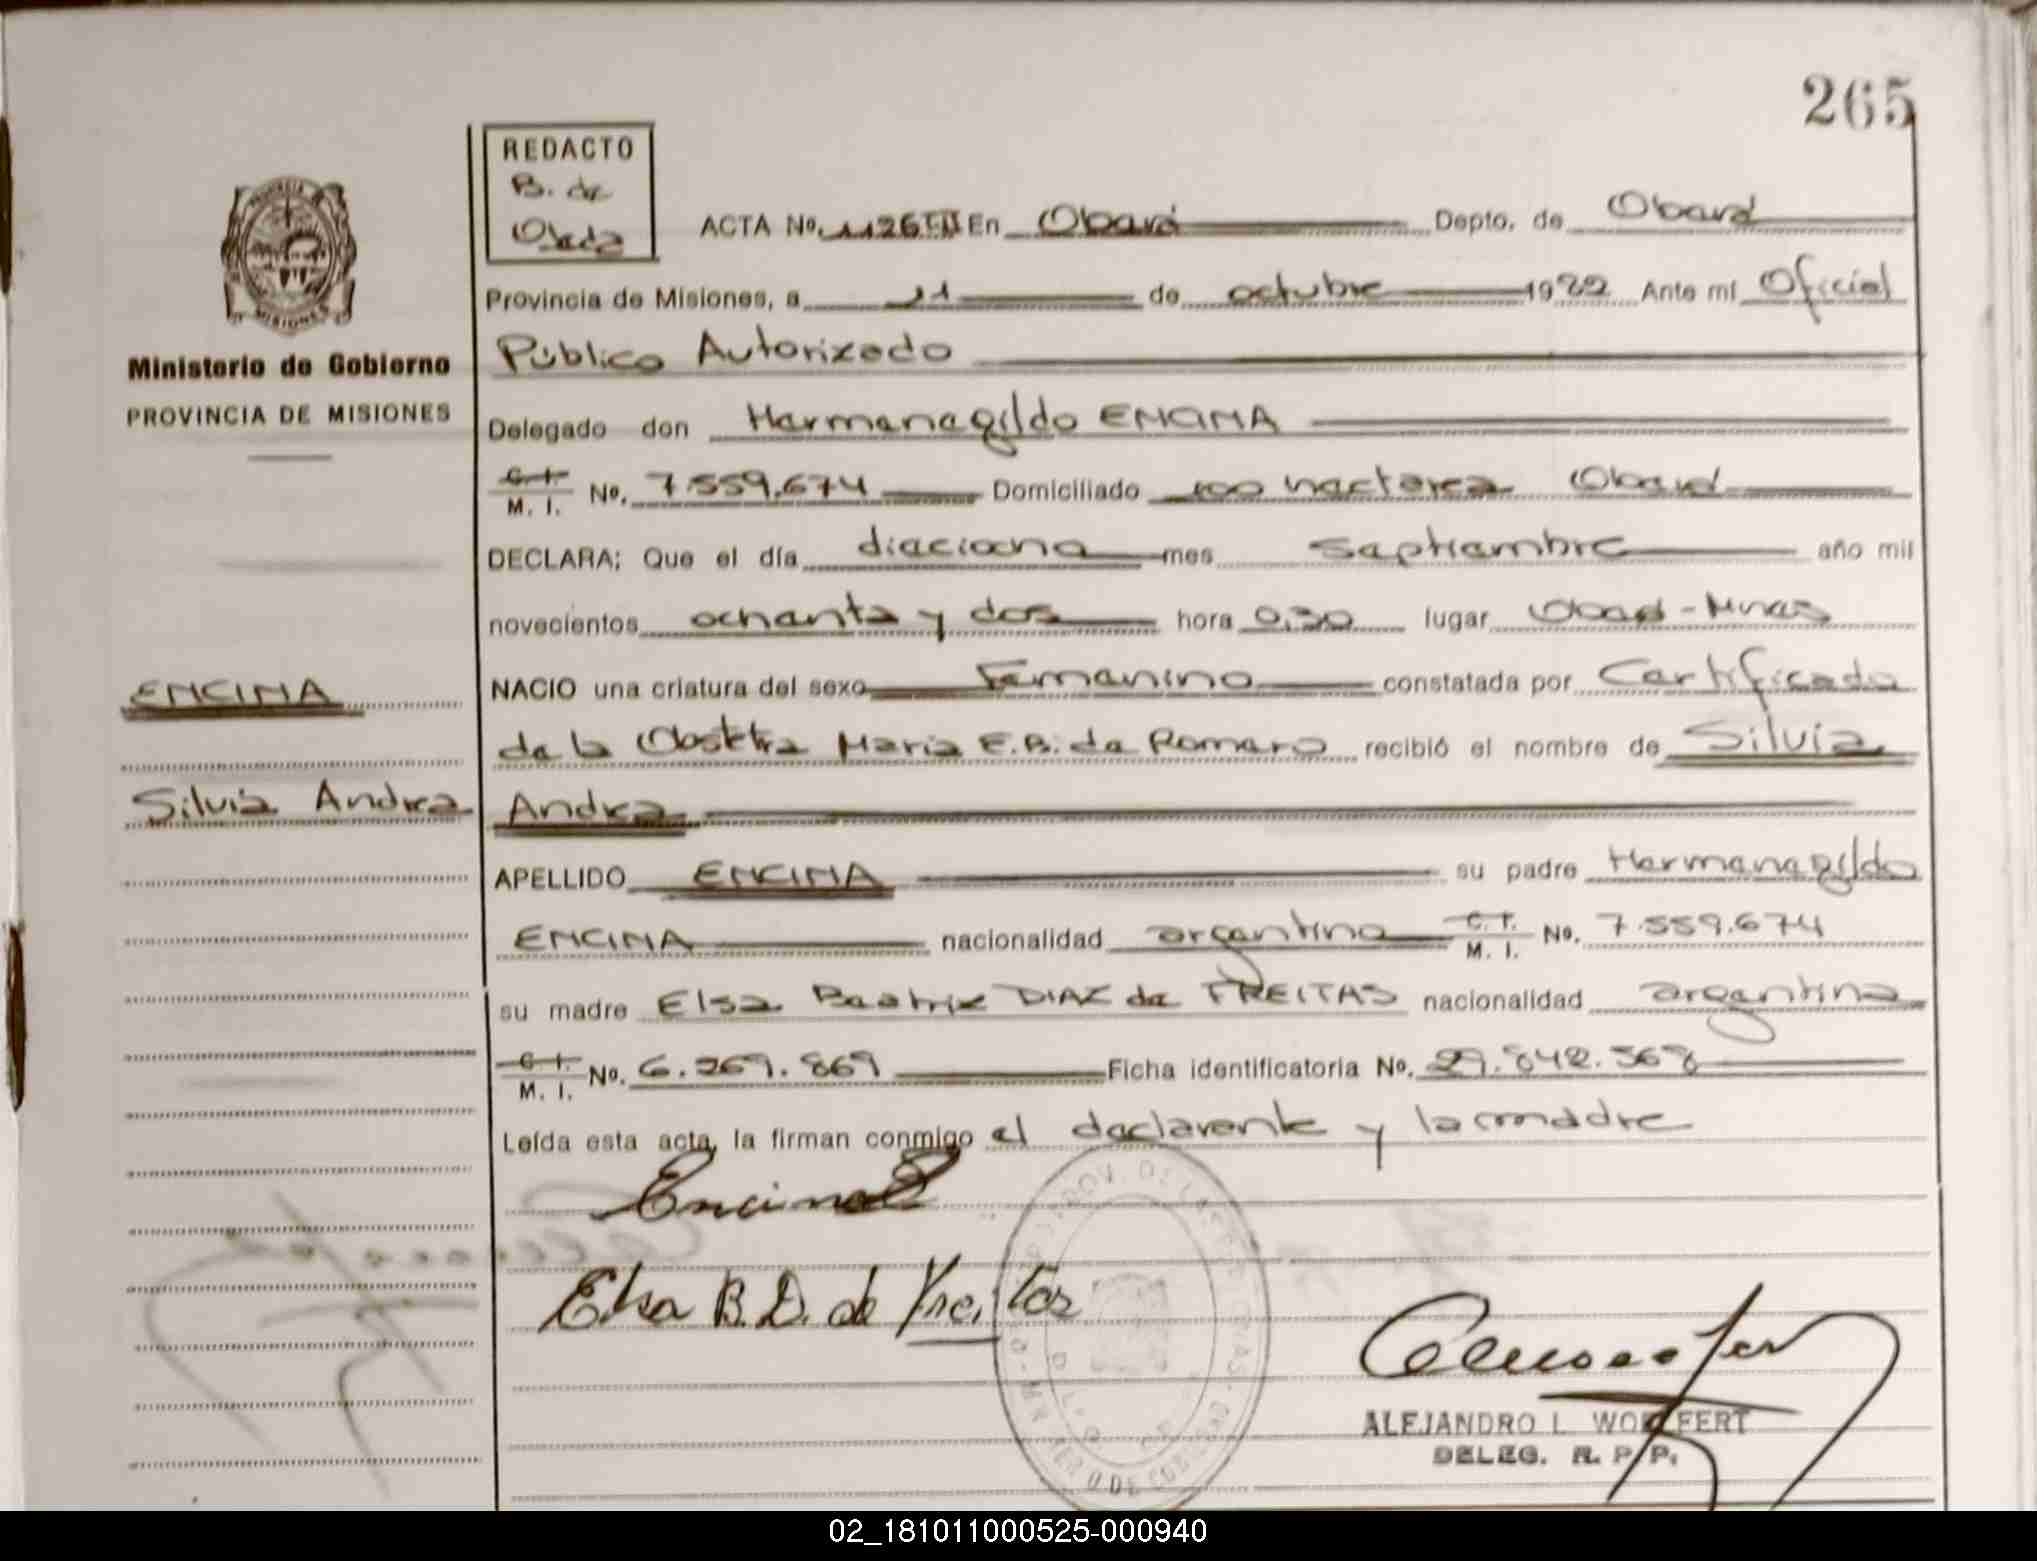 265
REDACTO
B. de
Ojeda
ACTA No. 1126 En Oberá Depto. de Oberá
Provincia de Misiones, a 11 de octubre 1982 Ante mí Oficial
Público Autorizado
Ministerio de Gobierno
PROVINCIA DE MISIONES
Delegado don Hermenegildo ENCINA
C. I.
M. I. No. 7.559.674 Domiciliado 100 hectarea Oberá
DECLARA; Que el día dieciono mes septiembre año mil
novecientos ochenta y dos hora 0,30 lugar Oberá - Mnes
NACIO una criatura del sexo Femenino constatada por Certificado
de la Obsttra Maria E.B. de Romero recibió el nombre de Silvia
Andrea
ENCINA
Silvia Andrea
APELLIDO ENCINA su padre Hermenegildo
ENCINA nacionalidad argentino C. I.
M. I. No. 7.559.674
su madre Elsa Beatriz DIAZ de FREITAS nacionalidad argentina
C. I.
M. I. No. 6.269.869 Ficha identificatoria No. 29.842.368
Leída esta acta, la firman conmigo el declarante y la madre
Encina
Elsa B. D. de Freitas
ALEJANDRO L. WOELFERT
DELEG. R. P. P.
02_181011000525-000940